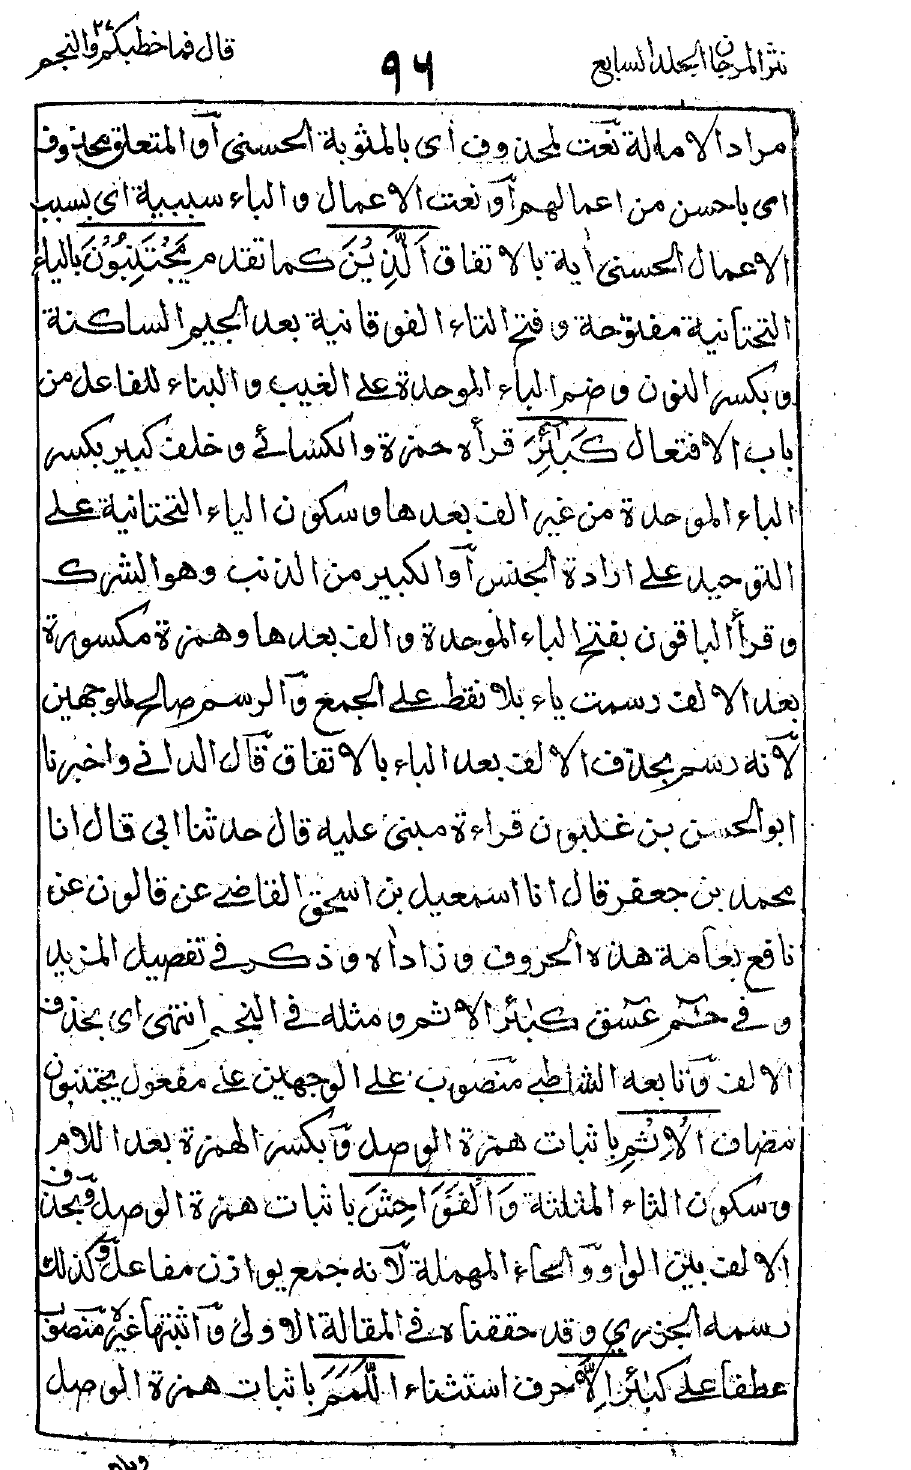 نثر المرجان المجلد السابع
٩٤
قال فما خطبكم ٢٧ والنجم
مراد الامالة نعت لمحذوف أى بالمثوبة الحسنى آو المتعلق محذوف
اى باحسن من اعمالهم آو نعت الاعمال والباء سببية اى بسبب
الاعمال الحسنى أية بالاتفاق اَلَّذِيْنَ كما تقدم يَجْتَنِبُوْنَ بالياء
التحتانية مفتوحة وفتح التاء الفوقانية بعد الجيم الساكنة
وبكسر النون وضم الباء الموحدة على الغيب والبناء للفاعل من
باب الافتعال كَبٰٓئِرَ قرأه حمزة والكسائي وخلف كبير بكسر
الباء الموحدة من غير الف بعدها وسكون الياء التحتانية على
التوحيد على ارادة الجنس آو الكبير من الذنب وهو الشرك
وقرأ الباقون بفتح الباء الموحدة والف بعدها وهمزة مكسورة
بعد الالف رسمت ياء بلا نقط على الجمع وآلرسم صالح للوجهين
لآنه رسم بحذف الالف بعد الباء بالاتفاق قآل الدانى واخبرنا
ابو الحسن بن غلبون قراءة مبنى عليه قال حدثنا ابى قال انا
محمد بن جعفر قال انا اسمعيل بن اسحق القاضى عن قالون عن
نافع بعامة هذه الحروف وزاداه وذكر فى تفصيل المزيد
وفى حٓمٓ عٓسٓقٓ كبٰئر الاثم ومثله فى النجم انتهى اى بحذف
الالف وتآبعه الشاطبى منصوب على الوجهين على مفعول يجتنبون
مضاف الْاِثْمِ باثبات همزة الوصل وآبكسر الهمزة بعد اللام
وسكون الثاء المثلثة وَالْفَوَاحِشَ باثبات همزة الوصل وبحذف
الالف بين الواو وآلحاء المهملة لآنه جمع يوازن مفاعل وكذلك
رسمه الجزرى وقد حققناه فى المقالة الاولى وآثبتها غيره منصوب
عطفا على كبٰئر اِلَّا حرف استثناء اللَّمَمَ باثبات همزة الوصل